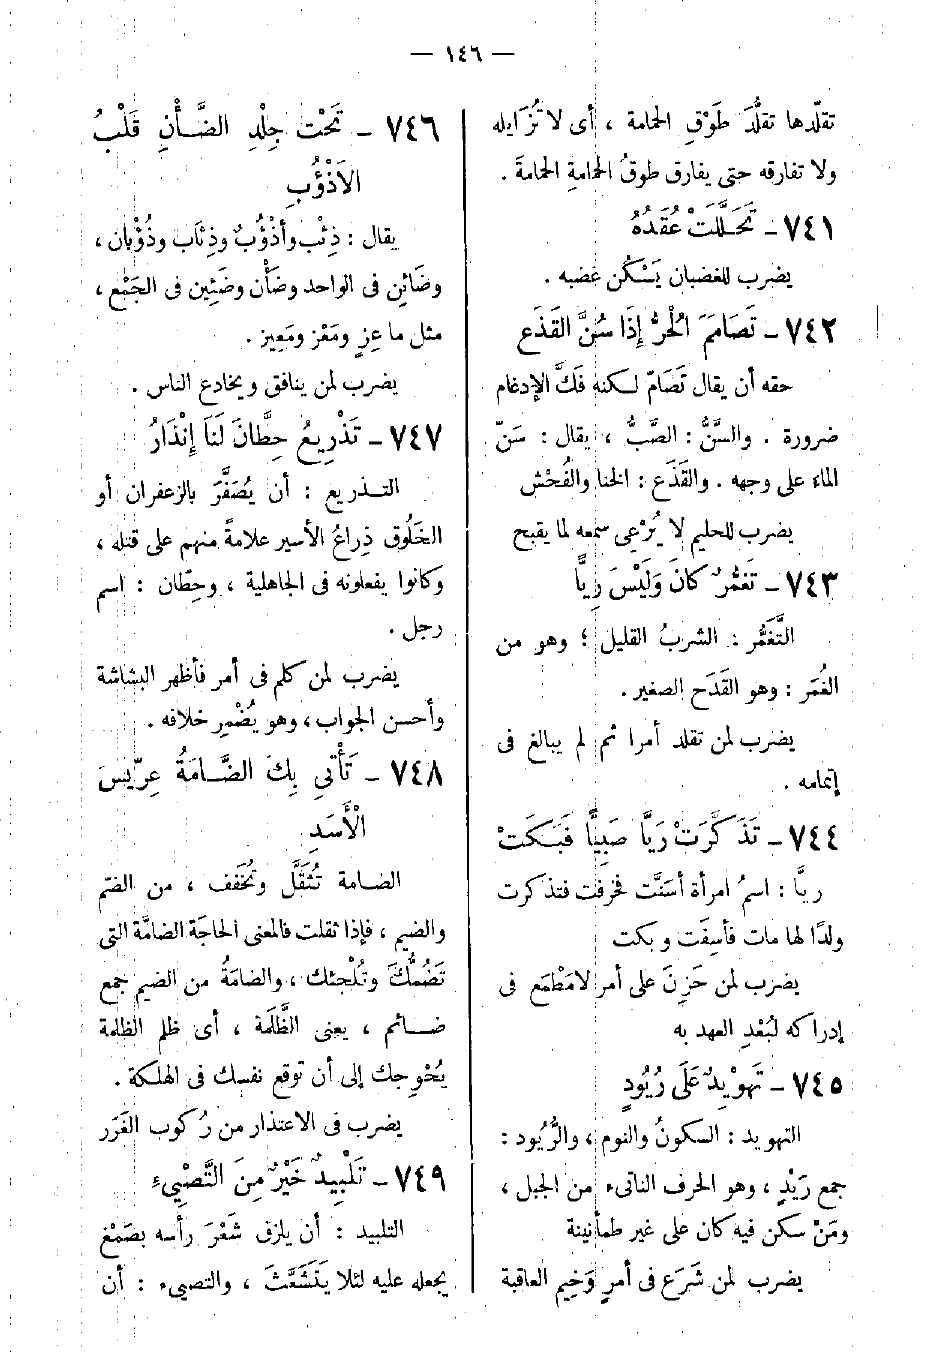 — ١٤٦ —
تقلّدها تقلُّدَ طَوْقِ الحمامة ، أى لا تُزَايله
ولا تفارقه حتى يفارق طوقُ الحمامةِ الحمامةَ .
٧٤١ – تَحَلَّلَتْ عُقَدُهُ
يضرب للغضبان يَسْكُن غضبه .
٧٤٢ – تَصَامَمَ الْحُرُّ إِذَا سُنَّ القَذَع
حقه أن يقال تَصَامّ لكنه فَكَّ الإدغام
ضرورة . والسَّنُّ : الصَّبُّ ، يقال : سَنّ
الماء على وجهه . والقَذَع : الخنا والفُحْش
يضرب للحليم لا يُرْعِى سمعه لما يقبح
٧٤٣ – تَغَمُّرٌ كانَ وَلَيْسَ رِيًّا
التَّغَمُّر : الشربُ القليل ؛ وهو من
الغُمَر : وهو القَدَح الصغير .
يضرب لمن تقلد أمرا ثم لم يبالغ فى
إتمامه .
٧٤٤ – تَذَكَّرَتْ رَيَّا صَبِيًّا فَبَكَتْ
ريَّا : اسمُ امرأة أسَنَّت فخرفت فتذكرت
ولدًا لها مات فأسِفَت وبكت
يضرب لمن حَزِنَ على أمر لامَطْمَع فى
إدراكه لبُعْدِ العهد به
٧٤٥ – تَهْوِيدٌ عَلَى رُيُودٍ
التهويد : السكونُ والنوم ، والرُّيُود :
جمع رَيْدٍ ، وهو الحرف الناتىء من الجبل ،
ومَنْ سكن فيه كان على غير طمأنينة
يضرب لمن شَرَع فى أمرٍ وَخِيم العاقبة
٧٤٦ – تَحْت جِلْدِ الضَّأْنِ قَلْبُ
الأَذْؤُبِ
يقال : ذِئْب وأَذْؤُبٌ وذِئَاب وذُؤْبان ،
وضَائِن فى الواحد وضَأْن وضَئِين فى الجَمْع ،
مثل ماعِزٍ ومَعْز ومَعِيز .
يضرب لمن ينافق ويخادع الناس .
٧٤٧ – تَذْرِيعُ حِطَّانَ لَنَا إِنْذَارُ
التذريع : أن يُصَفَّرَ بالزعفران أو
الخَلُوق ذِراعُ الأسير علامةً منهم على قتله ،
وكانوا يفعلونه فى الجاهلية ، وحِطّان : اسم
رجل .
يضرب لمن كلم فى أمر فأظهر البشاشة
وأحسن الجواب ، وهو يُضْمِر خلافه .
٧٤٨ – تَأْتِى بِكَ الضَّامَةُ عِرِّيسَ
الْأَسَدِ
الضامة تُثَقَّل وتُخَفف ، من الضّم
والضيم ، فإذا ثقلت فالمعنى الحاجَة الضامَّة التى
تَضُمُّكَ وتُلْجئك ، والضامَةُ من الضيم جمع
ضائم ، يعنى الظَّلَمَة ، أى ظلم الظلمة
يُحْوِجك إلى أن توقع نفسك فى الهلكة .
يضرب فى الاعتذار من رُكوب الغَرَر
٧٤٩ – تَلْبِيدٌ خَيْرٌ مِنَ التَّصْيِىءِ
التلبيد : أن يلزق شَعْرَ رأسه بصَمْغ
يجعله عليه لئلا يَتَشَعَّثَ ، والتصيىء : أن